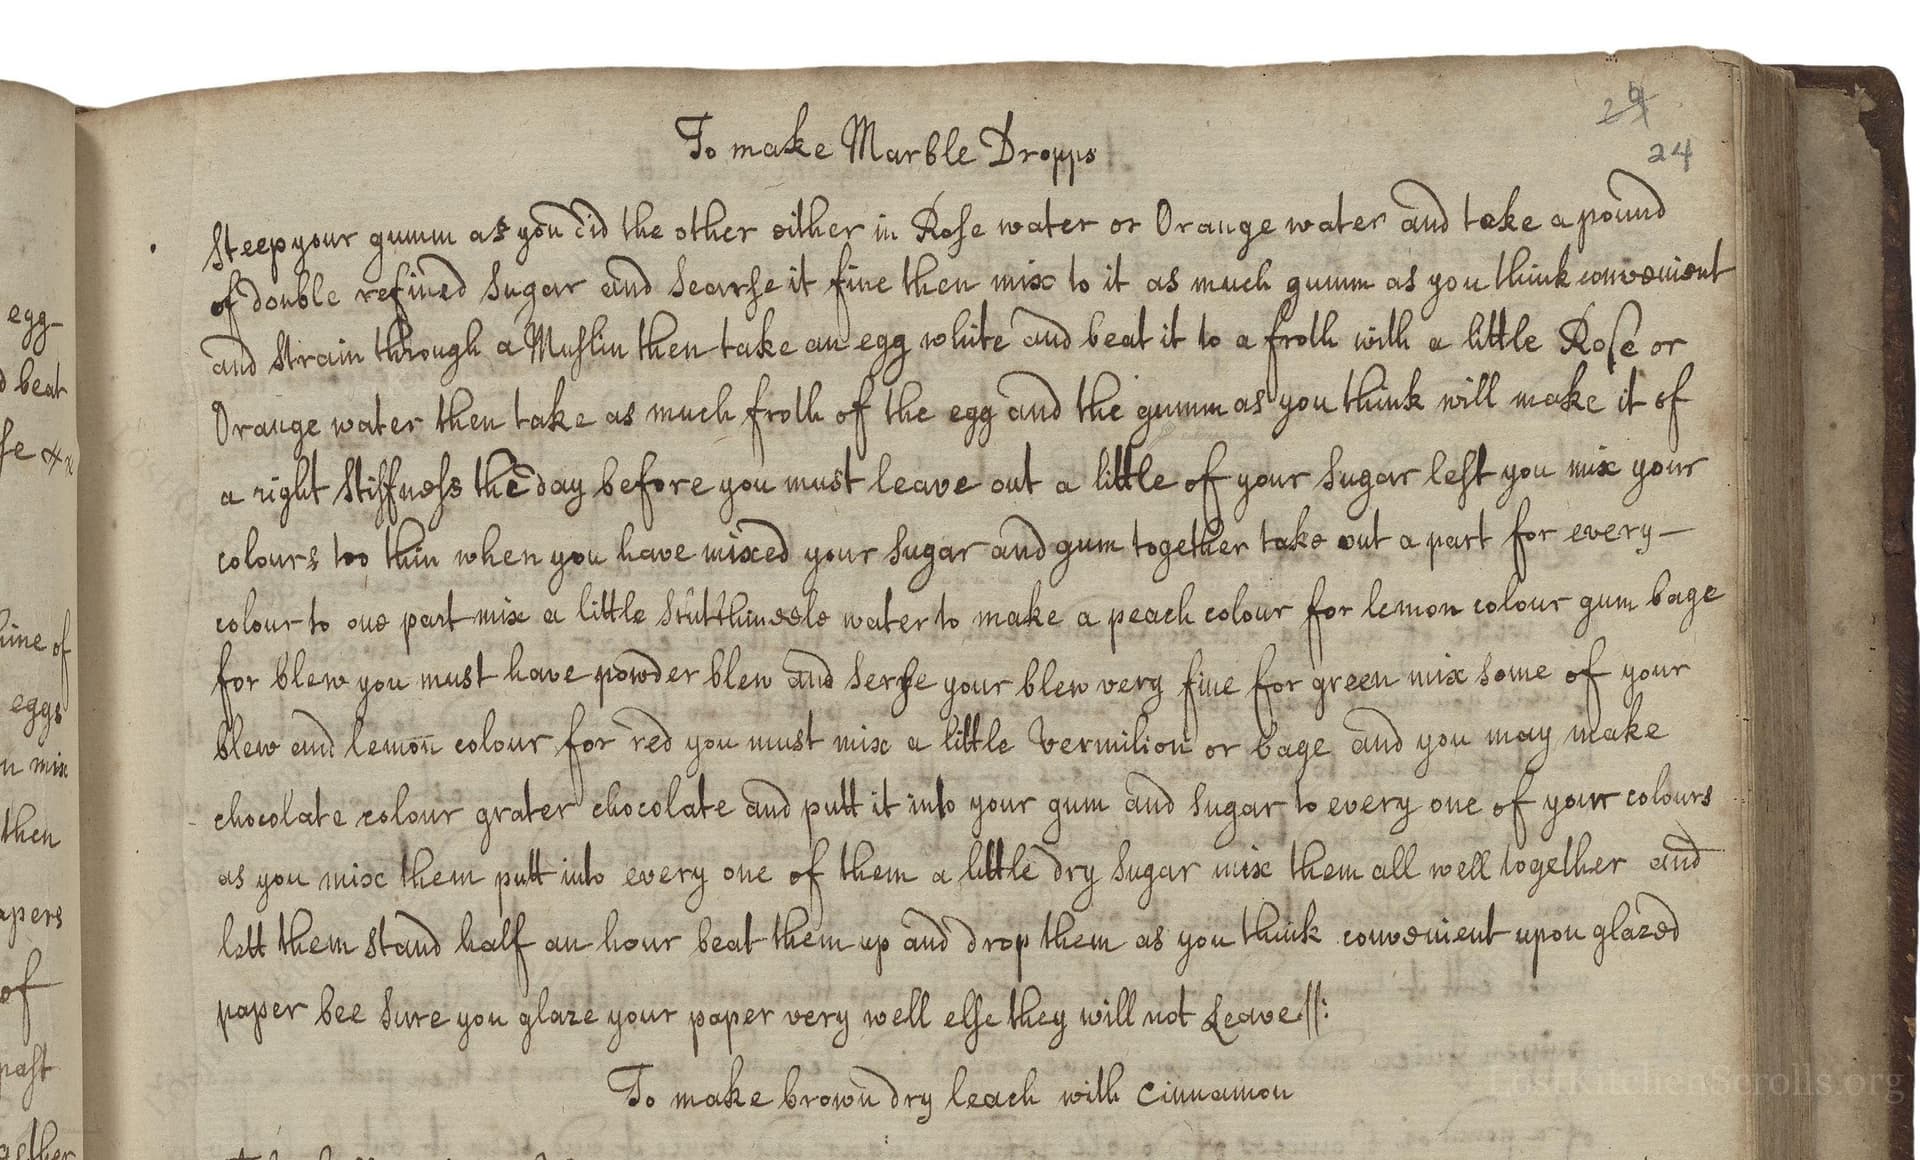 egg-
beat
hine of
eggs
n mix
then
apers
of
past
gether
29
24
To make Marble Dropps
Steep your gumm as you did the other either in Rose water or Orange water and take a pound
of double refined Sugar and Searse it fine then mix to it as much gumm as you think convenient
and Strain through a Muslin then take an egg white and beat it to a froth with a little Rose or
Orange water then take as much froth of the egg and the gumm as you think will make it of
a right Stiffness the day before you must leave out a little of your Sugar lest you mix your
colours too thin when you have mixed your Sugar and gum together take out a part for every-
colour to one part mix a little water to make a peach colour for lemon colour gum bage
for blew you must have powder blew and Serse your blew very fine for green mix some of your
blew and lemon colour for red you must mix a little Vermilion or bage and you may make
chocolate colour grater chocolate and putt it into your gum and Sugar to every one of your colours
as you mix them putt into every one of them a little dry Sugar mix them all well together and
lett them stand half an hour beat them up and drop them as you think convenient upon glazed
paper bee Sure you glaze your paper very well else they will not Leave//:
To make brown dry leach with Cinnamon
LostKitchenScrolls.org